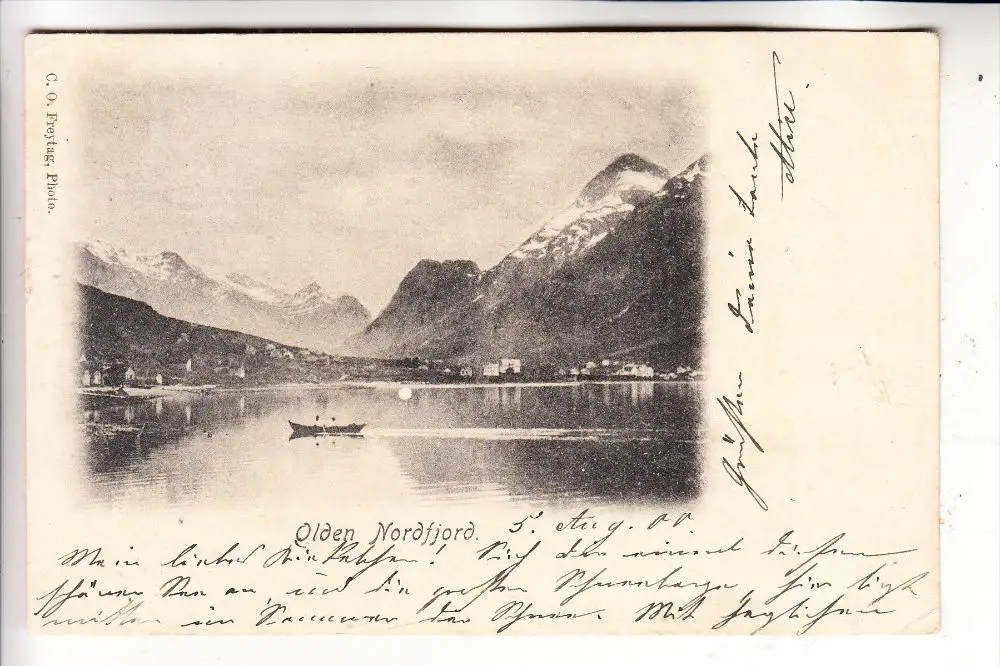 C. O. Freytag, Photo.
Olden Nordfjord. 5. Aug. 00
Mein liebes ! Sieh dir einmal diesen
schönen See an, und die großen Schneeberge, hier liegt
mitten im Sommer der Schnee. Mit herzlichen
Grüßen Deine Tante